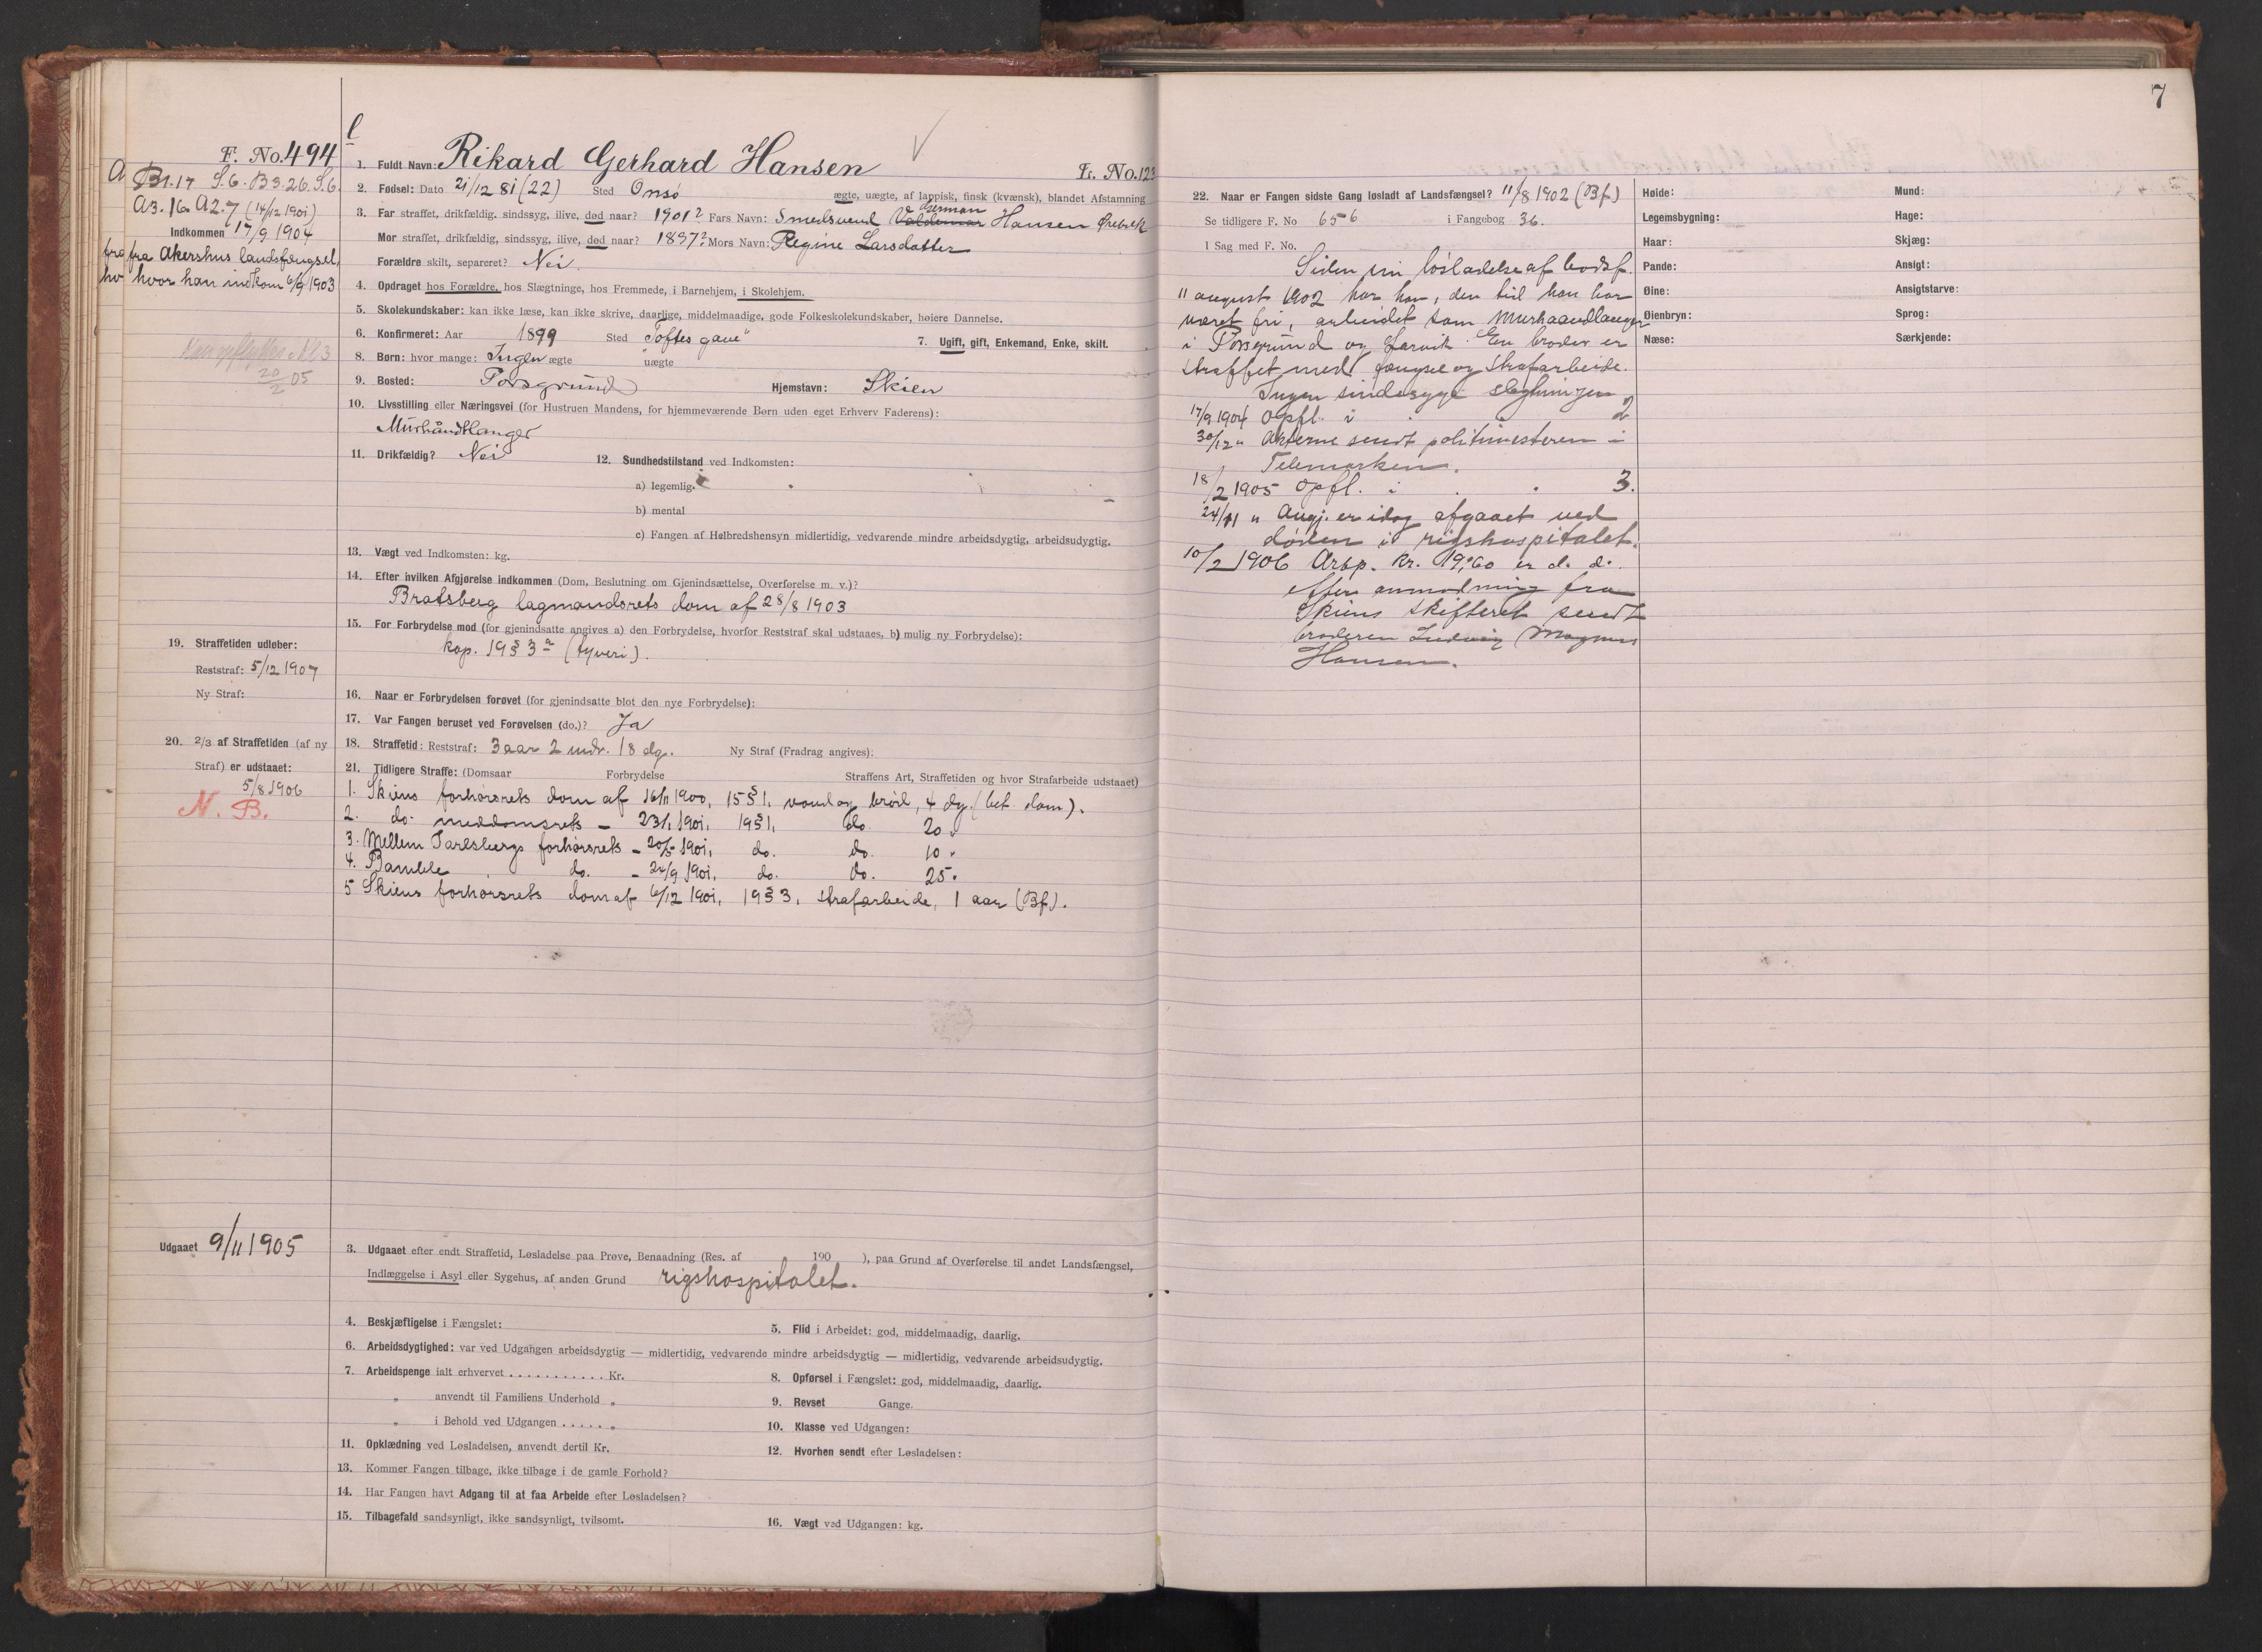 7
F. No. 494
A B1.17 S.6. B3.26. S.6.
A3.16 A2.7 (14/12 1901)
Indkommen 17/9 1904
fra Akershus landsfængsel,
hvor han indkom 6/9 1903
20/2 05
1. Fuldt Navn: Rikard Gerhard Hansen
Fr. No. 123
2. Fødsel: Dato 21/12 81 (22) Sted Onsø ægte, uægte, af lappisk, finsk (kvænsk), blandet Afstamning
3. Far straffet, drikfældig, sindssyg, ilive, død naar? 1901? Fars Navn: Smedsvend Valdemar Hansen Ørebæk
Mor straffet, drikfældig, sindssyg, ilive, død naar? 1897? Mors Navn: Regine Larsdatter
Forældre skilt, separeret? Nei.
4. Opdraget hos Forældre, hos Slægtninge, hos Fremmede, i Barnehjem, i Skolehjem.
5. Skolekundskaber: kan ikke læse, kan ikke skrive, daarlige, middelmaadige, gode Folkeskolekundskaber, høiere Dannelse.
6. Konfirmeret: Aar 1899 Sted "Toftes gave" 7. Ugift, gift, Enkemand, Enke, skilt.
8. Børn: hvor mange: Ingen ægte uægte
9. Bosted: Porsgrund Hjemstavn: Skien
10. Livsstilling eller Næringsvei (for Hustruen Mandens, for hjemmeværende Børn uden eget Erhverv Faderens):
Murhåndtlanger
11. Drikfældig? Nei 12. Sundhedstilstand ved Indkomsten:
a) legemlig.
b) mental
c) Fangen af Helbredshensyn midlertidig, vedvarende mindre arbeidsdygtig, arbeidsudygtig.
13. Vægt ved Indkomsten: kg.
14. Efter hvilken Afgjørelse indkommen (Dom, Beslutning om Gjenindsættelse, Overførelse m. v.)?
Bratsberg lagmandsrets dom af 28/8 1903
15. For Forbrydelse mod (for gjenindsatte angives a) den Forbrydelse, hvorfor Reststraf skal udstaaes, b) mulig ny Forbrydelse):
kap. 19 § 3 a (tyveri).
19. Straffetiden udløber:
Reststraf: 5/12 1907
Ny Straf:
16. Naar er Forbrydelsen forøvet (for gjenindsatte blot den nye Forbrydelse):
17. Var Fangen beruset ved Forøvelsen (do.)? Ja
20. 2/3 af Straffetiden (af ny
Straf) er udstaaet:
5/8 1906
N. B.
18. Straffetid: Reststraf: 3 aar 2 mdr. 18 dg. Ny Straf (Fradrag angives):
21. Tidligere Straffe: (Domsaar Forbrydelse Straffens Art, Straffetiden og hvor Strafarbeide udstaaet)
1. Skiens forhørsrets dom af 16/11 1900, 15 § 1, vand og brød, 4 dg. (bet. dom).
2. do. meddomsrets – 23/1 1901, 19 § 1, do. 20 "
3. Mellem Jarlsbergs forhørsrets – 20/5 1901, do. do. 10 "
4. Bamble do. – 24/9 1901, do. do. 25 "
5 Skiens forhørsrets dom af 6/12 1901, 19 § 3, strafarbeide, 1 aar (Bf).
Udgaaet 9/11 1905
3. Udgaaet efter endt Straffetid, Løsladelse paa Prøve, Benaadning (Res. af 190 ), paa Grund af Overførelse til andet Landsfængsel,
Indlæggelse i Asyl eller Sygehus, af anden Grund rigshospitalet.
4. Beskjæftigelse i Fængslet: 5. Flid i Arbeidet: god, middelmaadig, daarlig.
6. Arbeidsdygtighed: var ved Udgangen arbeidsdygtig — midlertidig, vedvarende mindre arbeidsdygtig — midlertidig, vedvarende arbeidsudygtig.
7. Arbeidspenge ialt erhvervet . . . . . . . . . . . Kr. 8. Opførsel i Fængslet: god, middelmaadig, daarlig.
" anvendt til Familiens Underhold " 9. Revset Gange.
" i Behold ved Udgangen . . . . . " 10. Klasse ved Udgangen:
11. Opklædning ved Løsladelsen, anvendt dertil Kr. 12. Hvorhen sendt efter Løsladelsen:
13. Kommer Fangen tilbage, ikke tilbage i de gamle Forhold?
14. Har Fangen havt Adgang til at faa Arbeide efter Løsladelsen?
15. Tilbagefald sandsynligt, ikke sandsynligt, tvilsomt. 16. Vægt ved Udgangen: kg.
22. Naar er Fangen sidste Gang løsladt af Landsfængsel? 11/8 1902 (Bf)
Se tidligere F. No 656 i Fangebog 36.
I Sag med F. No.
Siden sin løsladelse af bodsf.
11 august 1902 har han, den tid han har
været fri, arbeidet som murhaandlanger
i Porsgrund og Larvik. En broder er
straffet med fængsel og strafarbeide.
Ingen sindssyge slegtninger
17/9 1904 Opfl. i 2
30/12 " Akterne sendt politimesteren i
Telemarken.
18/2 1905 Opfl. i 3.
24/11 " Angj. er idag afgaaet ved
døden i rigshospitalet.
10/2 1906 Arbp. kr. 19,60 er d. d.
efter anmodning fra
Skiens skifteret sendt
broderen Ludvig Magnus
Hansen.
Høide:
Legemsbygning:
Haar:
Pande:
Øine:
Øienbryn:
Næse:
Mund:
Hage:
Skjæg:
Ansigt:
Ansigtstarve:
Sprog:
Særkjende: